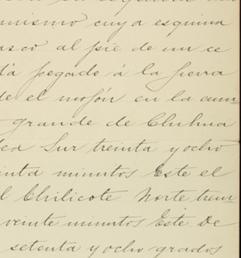 mismo cuya esquina
asco al pié de un ce
tá pegado á la sierra
de el mojón en la cum
grande de Chihua
Sur treinta y ocho
enta minutos Este el
l Chilicote Norte trein
veinte minutos Este De
setenta y ocho grados